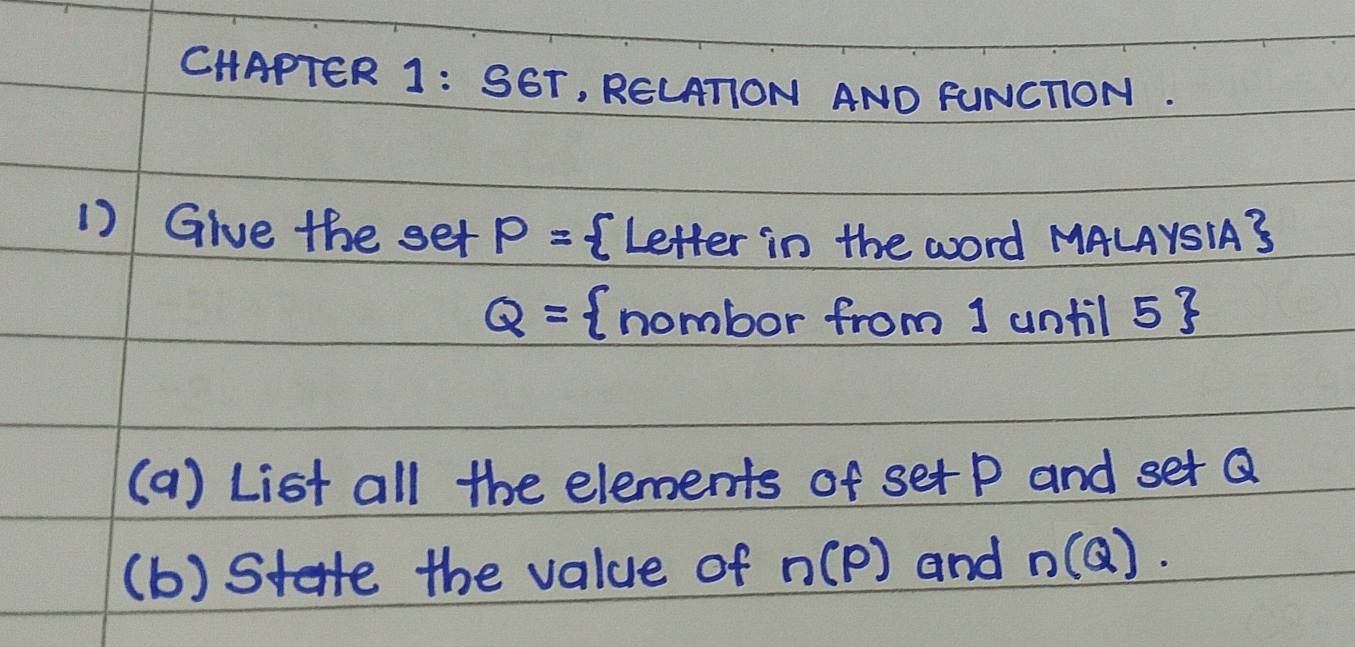 CHAPTER 1: SET, RELATION AND FUNCTION.
1) Give the set P = { Letter in the word MALAYSIA }
Q = { nombor from 1 until 5 }
(a) List all the elements of set P and set Q
(b) State the value of n(P) and n(Q).